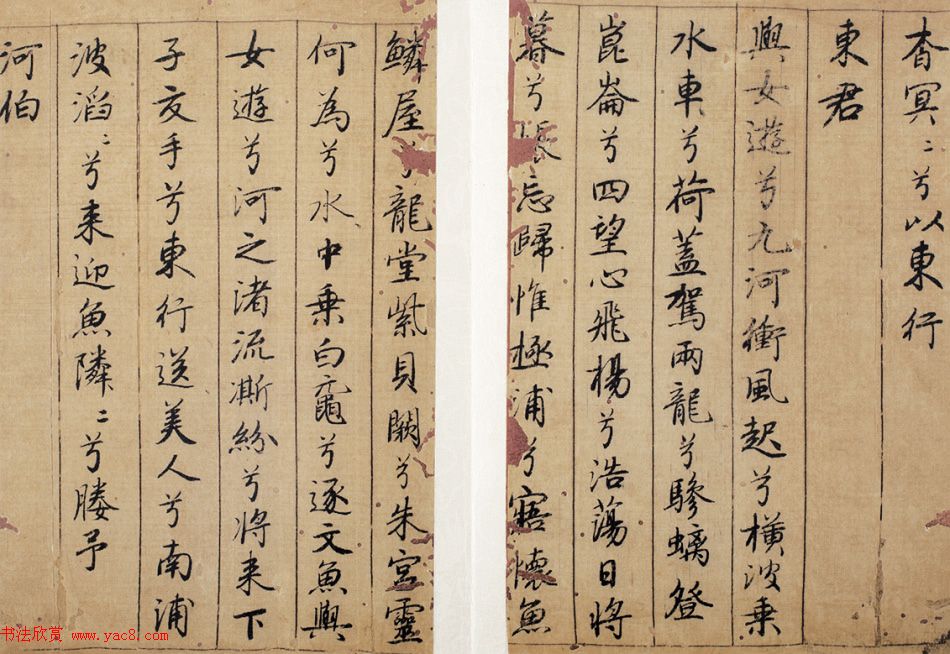 杳冥〻兮以東行
東君
與女遊兮九河衝風起兮橫波乗
水車兮荷蓋駕兩龍兮驂螭登
崑崙兮四望心飛楊兮浩蕩日將
暮兮悵忘歸惟極浦兮寤懷魚
鱗屋兮龍堂紫貝闕兮朱宮靈
何為兮水中乗白黿兮逐文魚與
女遊兮河之渚流凘紛兮將来下
子交手兮東行送美人兮南浦
波滔〻兮来迎魚隣〻兮媵予
河伯
书法欣赏 www.yac8.com